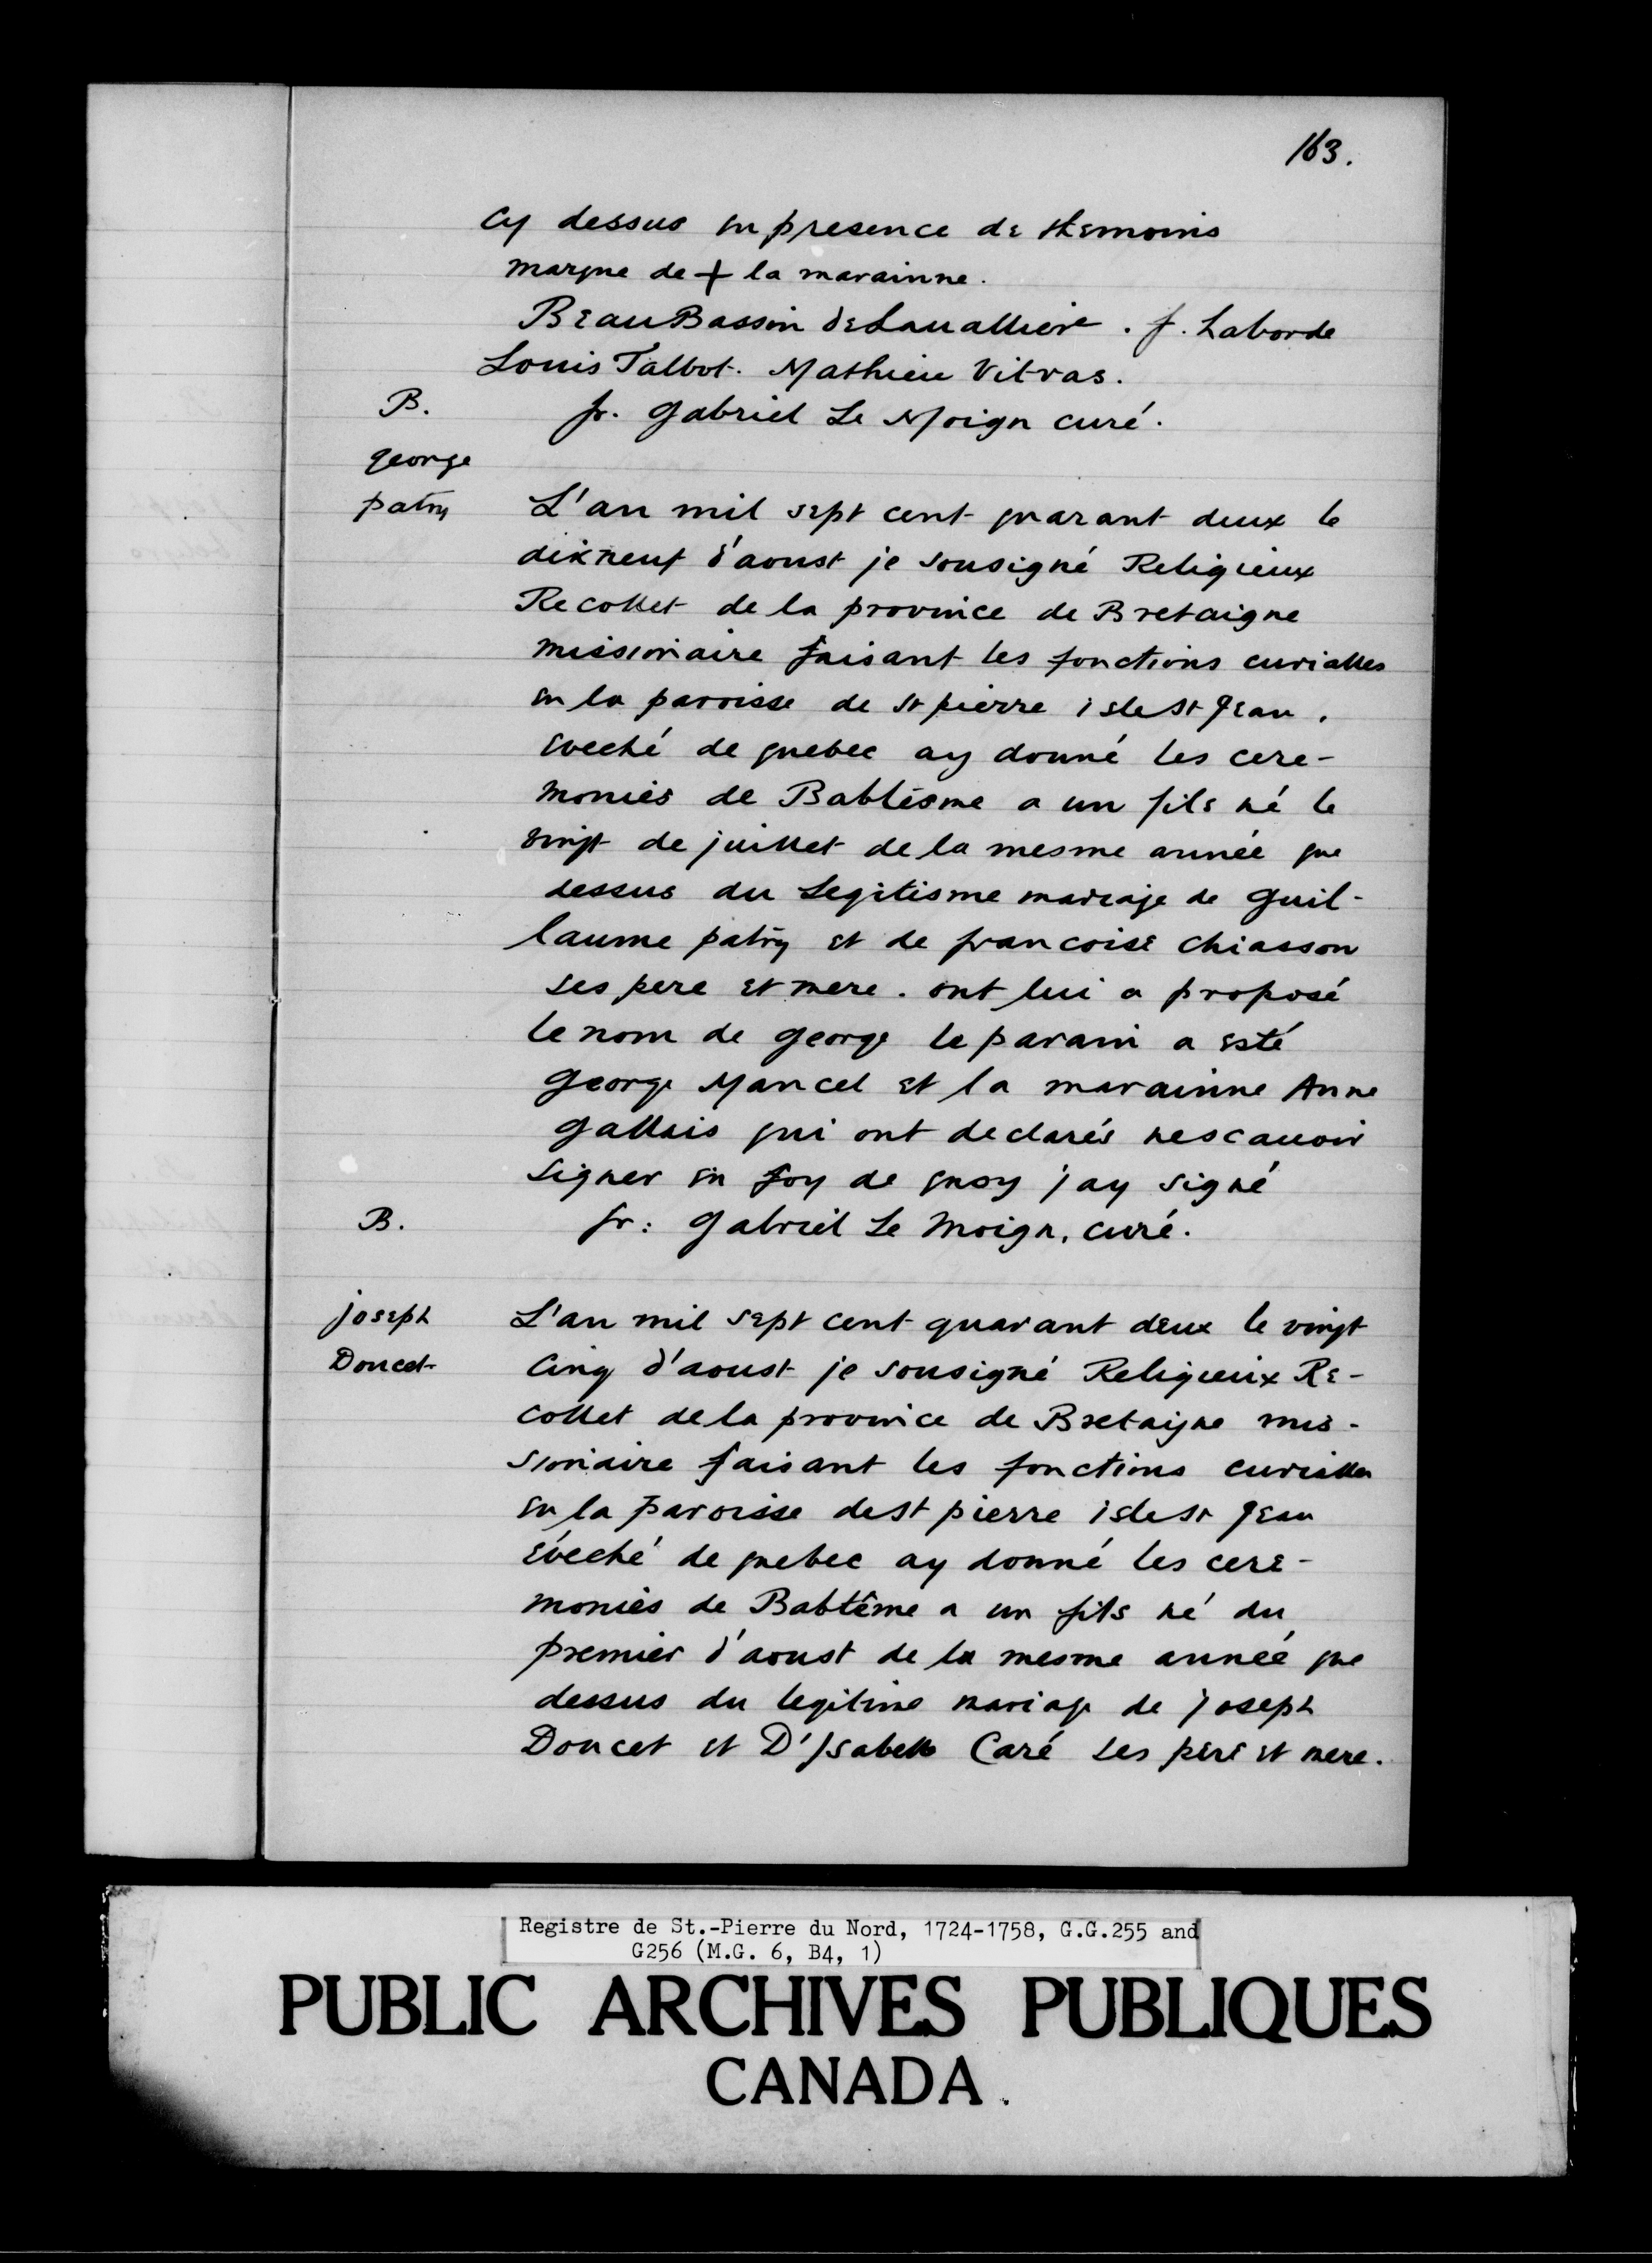 163.
cy dessus en presence de
marque de + la marainne.
BeauBassin deLauallière. f. Laborde
Louis Talbot. Mathieu Vitras.
B. fr. gabriel Le Moign curé.
george
patry L'an mil sept cent quarant deux le
dixneuf d'aoust je sousigné Religieux
Recollet de la province de Bretaigne
missionaire faisant les fonctions curialles
en la parroisse de st pierre isle st Jean,
eveché de quebec ay donné les cere-
monies de Babtésme a un fils né le
vingt de juillet de la mesme année que
dessus du Legitisme mariage de guil-
laume patry et de francoise chiasson
ses pere et mere. ont lui a proposé
le nom de george le parain a esté
george Mancel et la marainne Anne
gallais qui ont declarés nescauoir
signer en foy de quoy j'ay signé
B. fr: gabriel Le Moign, curé.
joseph L'an mil sept cent quarant deux le vingt
Doucet cinq d'aoust je sousigné Religieux Re-
collet de la province de Bretaigne mis-
sionaire faisant les fonctions curialles
en la paroisse de st pierre isle st Jean
éveché de quebec ay donné les cere-
monies de Babtême a un fils né du
premier d'aoust de la mesme année que
dessus du legitime mariage de joseph
Doucet et D'Isabelle Caré ses pere et mere.
Registre de St.-Pierre du Nord, 1724-1758, G.G.255 and
G256 (M.G. 6, B4, 1)
PUBLIC ARCHIVES PUBLIQUES
CANADA.